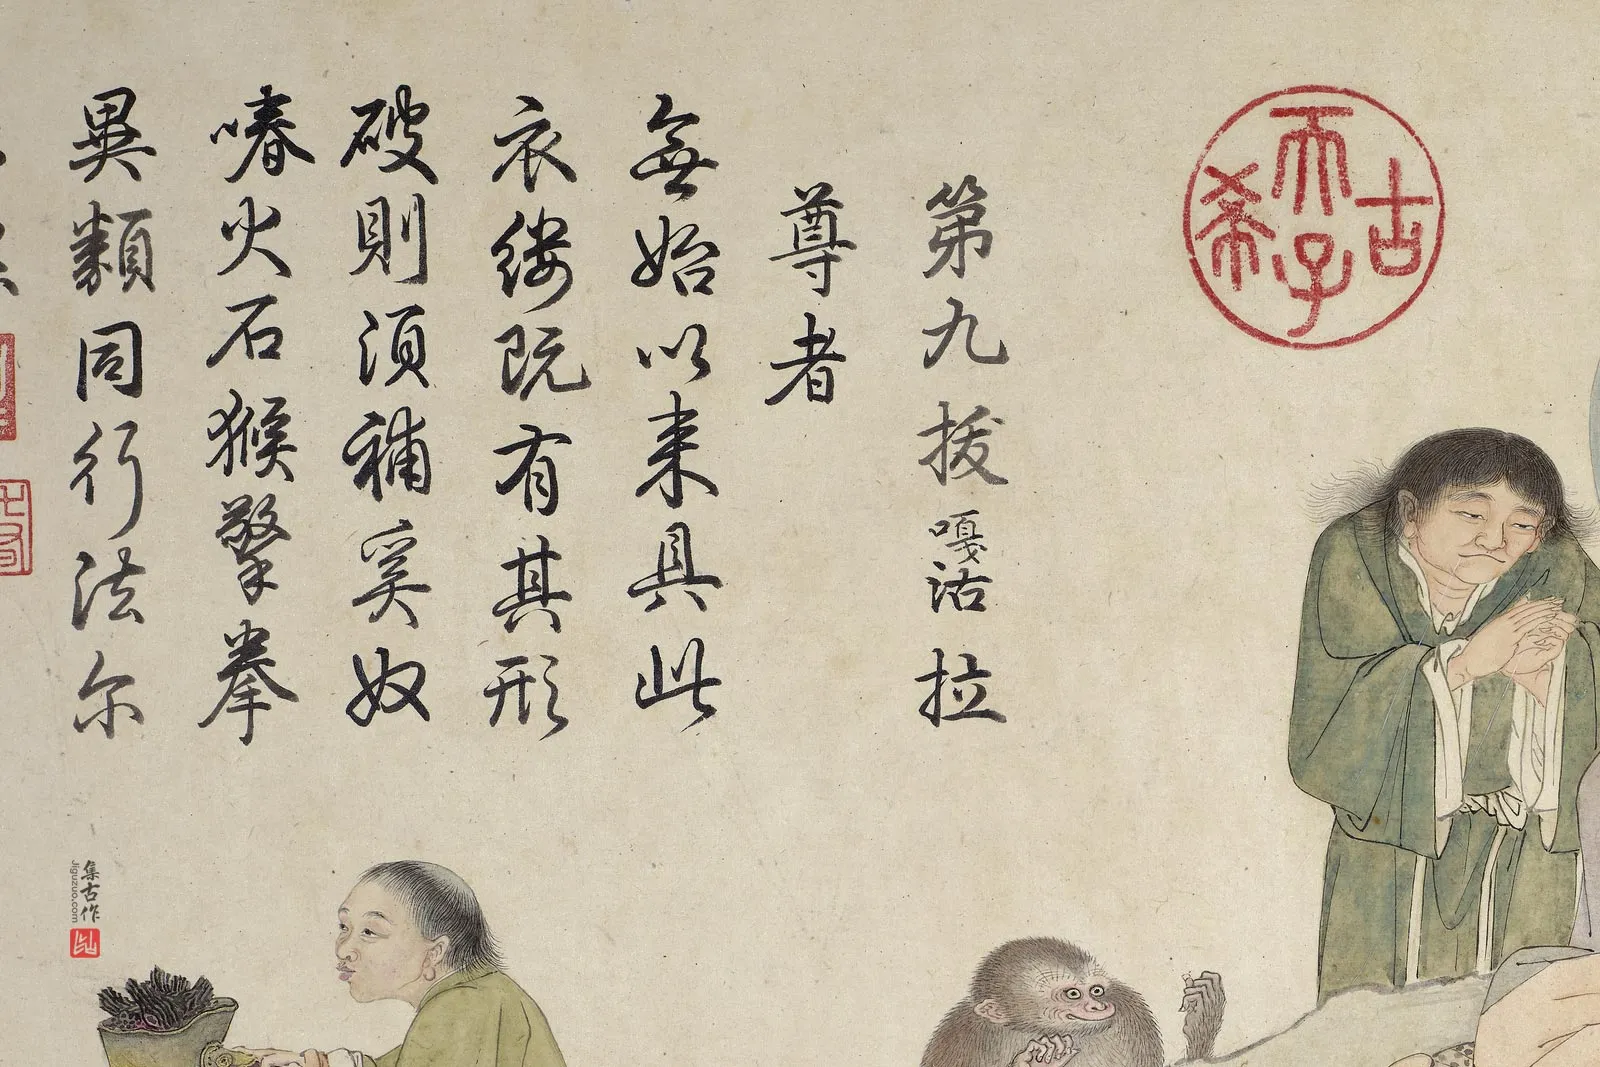 古希天子
第九拔嘎沽拉
尊者
無始以来具此
衣縷既有其形
破則須補奚奴
火石猴擎拳
異類同行法尔
集古作
Jiguzuo.com